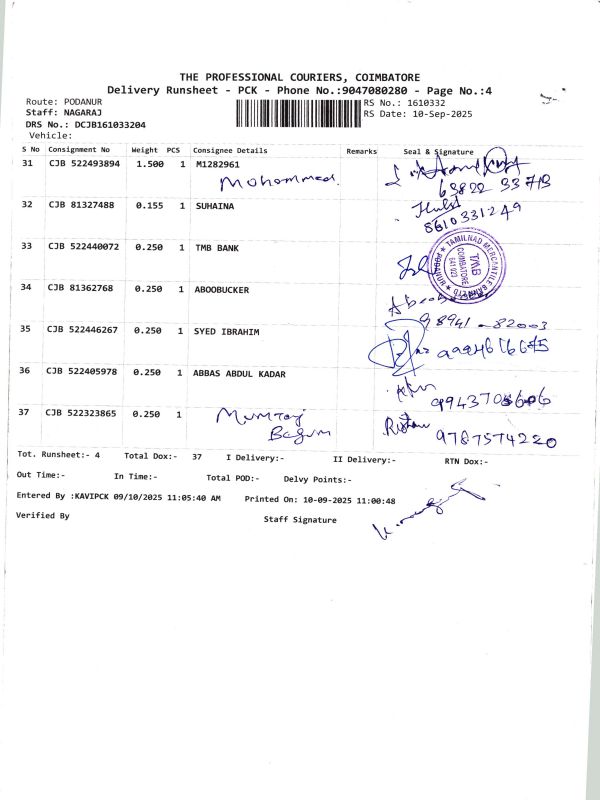 THE PROFESSIONAL COURIERS, COIMBATORE
Delivery Runsheet - PCK - Phone No.:9047080280 - Page No.:4
Route: PODANUR
Staff: NAGARAJ
DRS No.: DCJB161033204
Vehicle:
RS No.: 1610332
RS Date: 10-Sep-2025
S No Consignment No Weight PCS Consignee Details Remarks Seal & Signature
31 CJB 522493894 1.500 1 M1282961
Mohammed.
63822 33713
32 CJB 81327488 0.155 1 SUHAINA
8610331249
33 CJB 522440072 0.250 1 TMB BANK
TAMILNAD MERCANTILE BANK LTD
PODANUR
TMB
COIMBATORE
641 023
34 CJB 81362768 0.250 1 ABOOBUCKER
98941-82003
35 CJB 522446267 0.250 1 SYED IBRAHIM
36 CJB 522405978 0.250 1 ABBAS ABDUL KADAR
37 CJB 522323865 0.250 1 Mumtaj
Begum
9787574220
Tot. Runsheet:- 4 Total Dox:- 37 I Delivery:- II Delivery:- RTN Dox:-
Out Time:- In Time:- Total POD:- Delvy Points:-
Entered By :KAVIPCK 09/10/2025 11:05:40 AM Printed On: 10-09-2025 11:00:48
Verified By Staff Signature